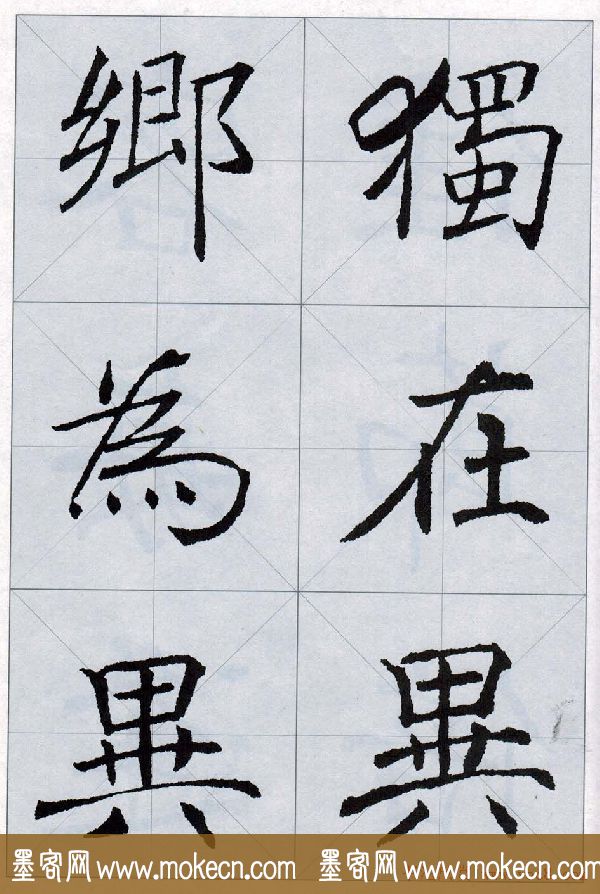 獨在異
鄉為異
墨客网 www.mokecn.com 墨客网 www.mokecn.com